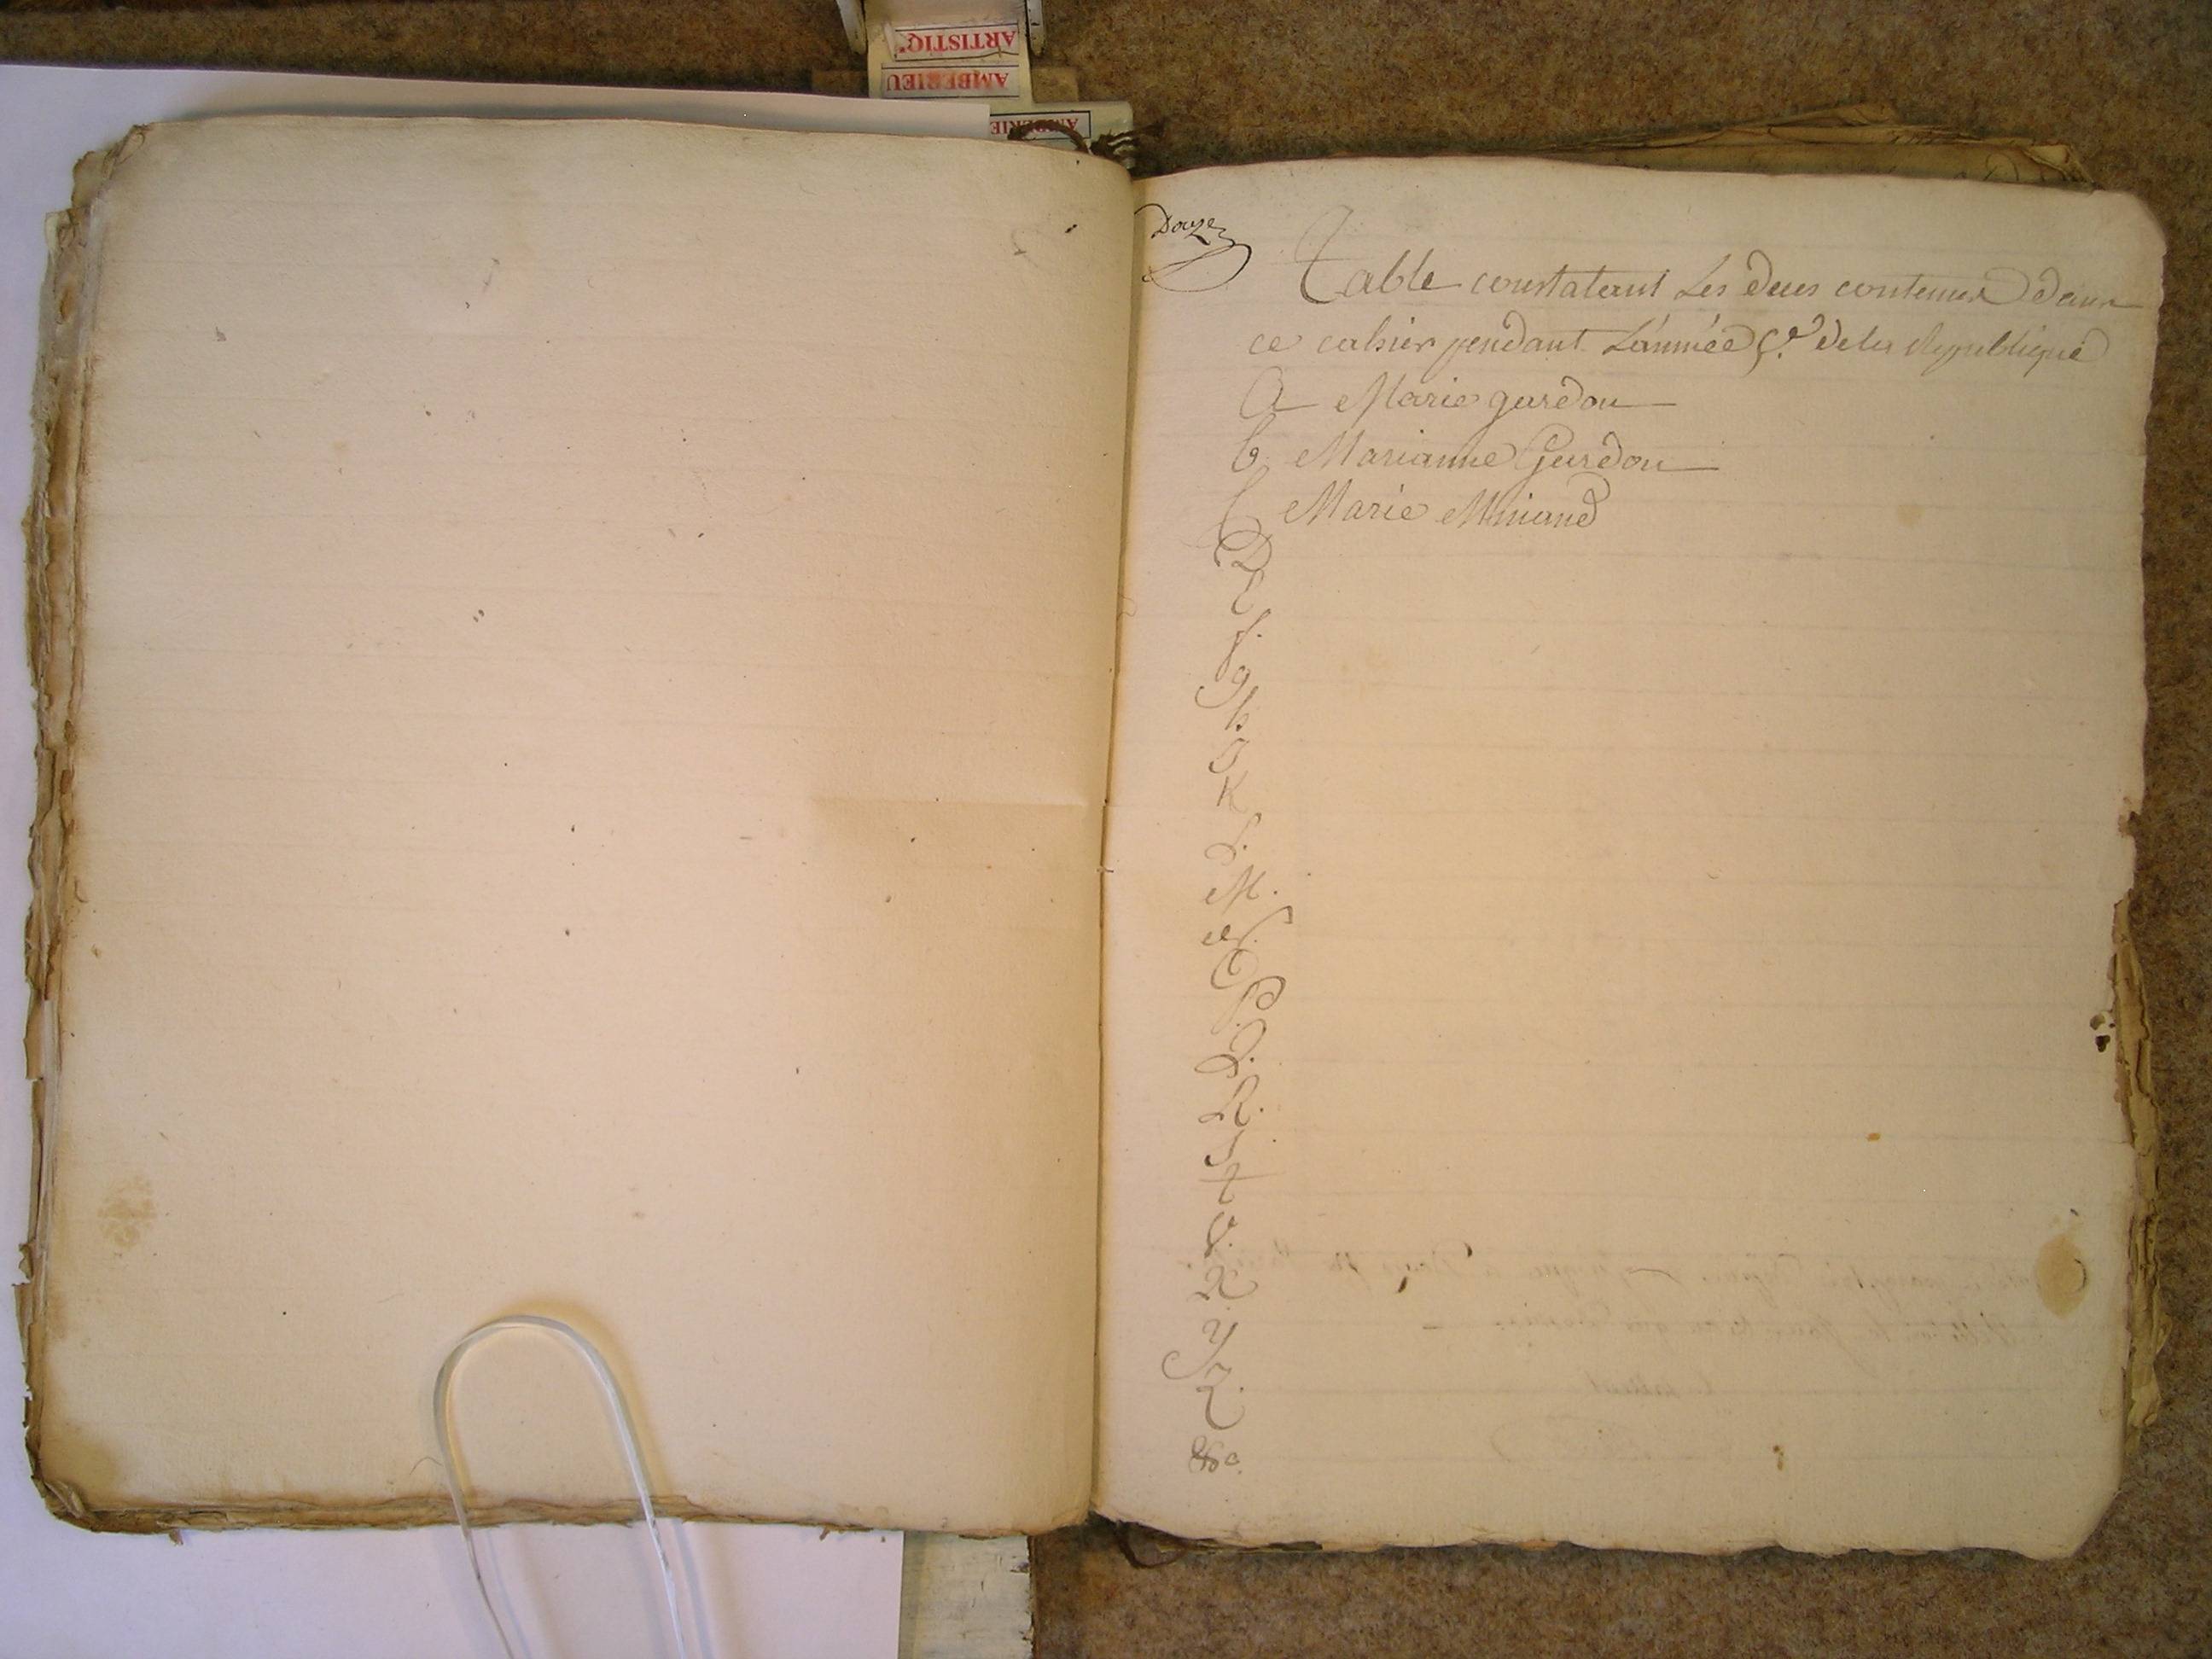 ARTISTIQ'
AMBERIEU
AMBERIE
Douze
Table constatant Les deces contenus dans
ce cahier pendant L'année 5.e de la Republique
A Marie gurdon
b Marianne Gurdon
C Marie Miniand
D
E
f.
g
h
J
K
L.
M.
N.
O
P.
Q.
R.
S
t
V.
X
y
Z.
&c.